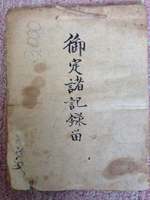 御定諸記録留